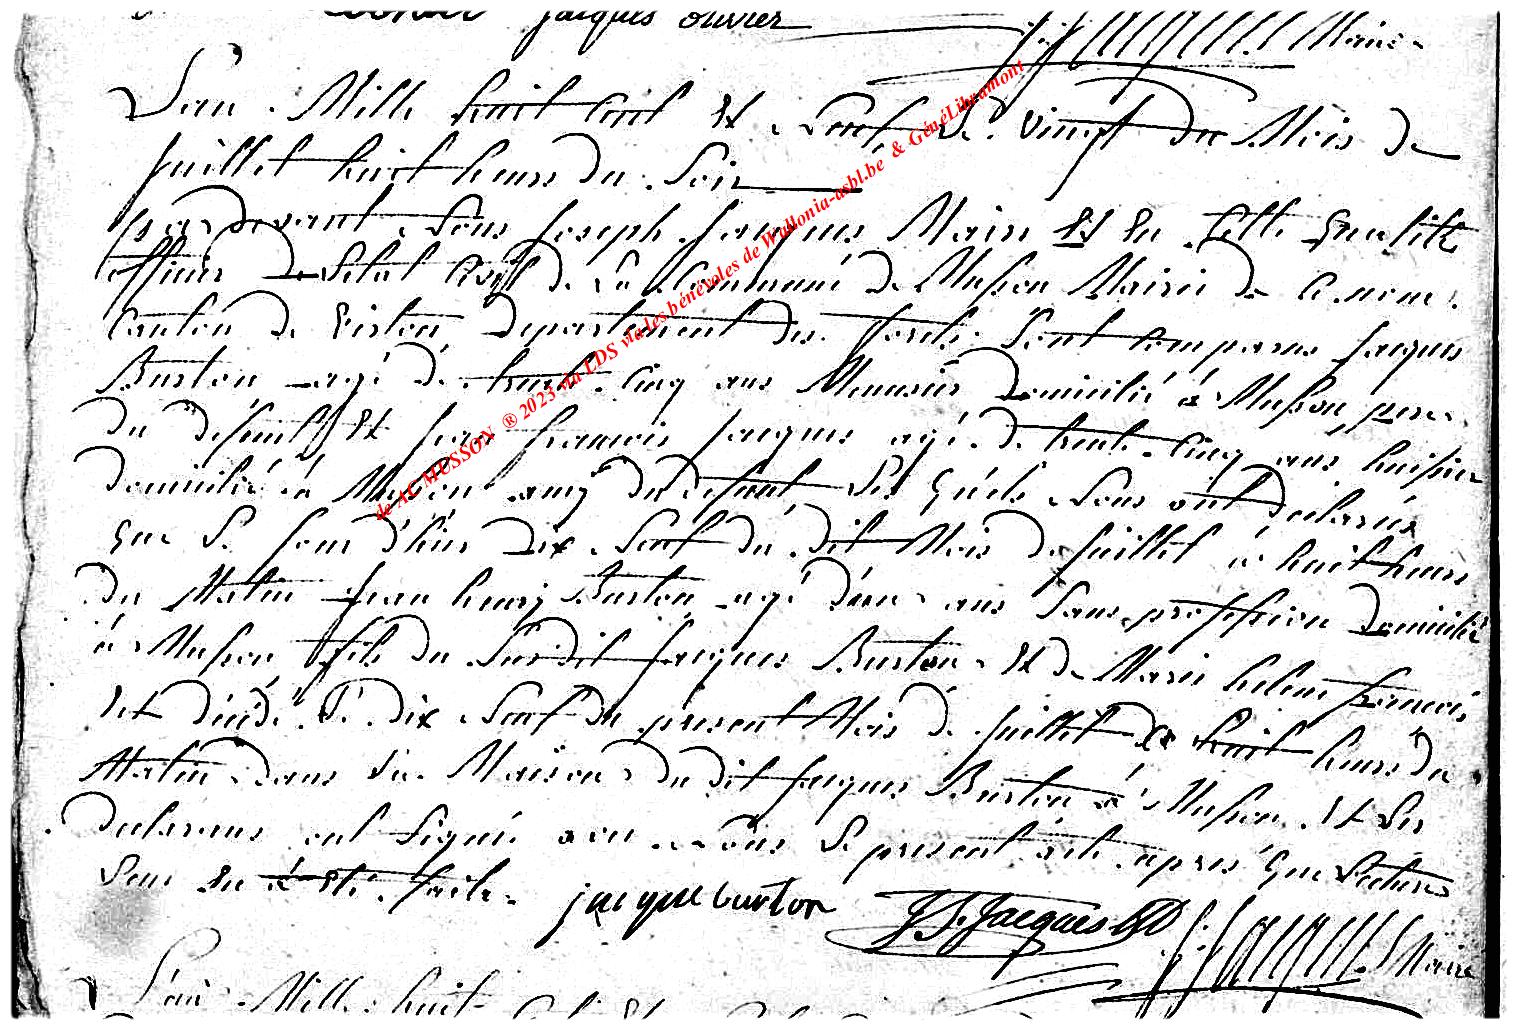 jacques ouvrier
Maire
L'an Mille huit Cent Et Sept Le vingt du Mois de
Juillet huit heures du Soir
pardevant Nous Joseph Jacques Maire Et En Cette qualité
officier de L'état Civil de La Commune de Musson Mairie de Ce nom
Canton de Virton département des forêts Sont Comparus Jacques
Burton agé de trente Cinq ans Menusier domicilié à Musson pere
du défunt Et Jean françois Jacques agé de trente Cinq ans huissier
domicilié à Musson amy du defunt Les quels Nous ont declarés
que Le Jour d'hier dix Sept du dit Mois de Juillet à huit heures
du Matin Jean henry Burton agé d'un ans Sans profession domicilié
à Musson fils du Susdit Jacques Burton Et de Marie helene françois
Est décédé Le dix Sept du présent Mois de Juillet à huit heures du
Matin dans La Maison du dit Jacques Burton à Musson Et Les
declarans ont Signé avec Nous Le présent acte apres que Lecture
Leur En à Eté faite
jacque burton
J.f. Jacques
J. Jacques Maire
L'an Mille huit
de AC MUSSON ® 2023 via LDS via les bénévoles de Wallonia-asbl.be & GénéLibramont